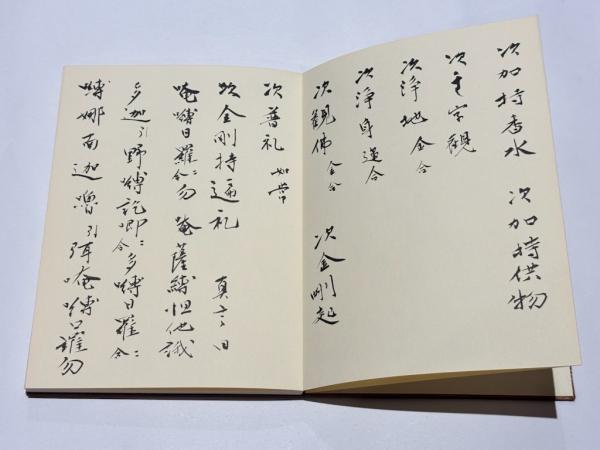 次加持香水 次加持供物
次字観
次浄地 金合
次浄身 蓮合
次観佛 金合 次金剛起
次普礼 如常
次金剛持遍礼 真言曰
唵嚩日羅二合勿 唵薩縛怛他誐
多迦引野嚩訖唧二合多嚩日羅二合
嚩娜而迦嚕引弭唵嚩日羅勿